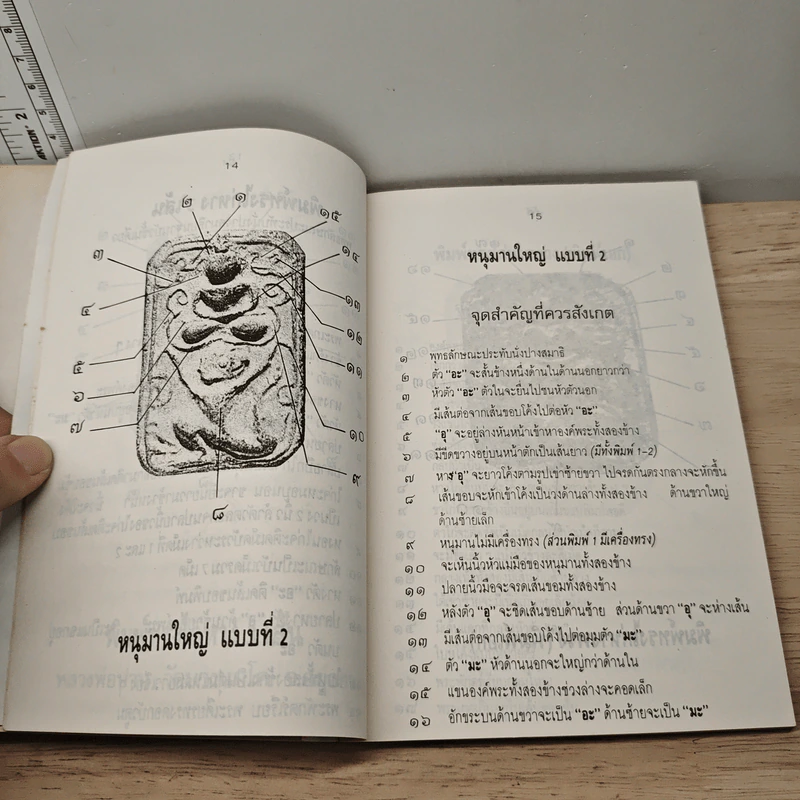 14
๒
๑
๑๕
๓
๑๔
๔
๑๓
๑๒
๕
๑๑
๖
๗
๑๐
๙
๘
หนุมานใหญ่ แบบที่ 2
15
หนุมานใหญ่ แบบที่ 2
จุดสำคัญที่ควรสังเกต
๑ พุทธลักษณะประทับนั่งปางสมาธิ
๒ ตัว "อะ" จะสั้นข้างหนึ่งด้านในด้านนอกยาวกว่า
๓ หัวตัว "อะ" ตัวในจะยื่นไปชนหัวตัวนอก
๔ มีเส้นต่อจากเส้นขอบโค้งไปต่อหัว "อะ"
๕ "อุ" จะอยู่ล่างหันหน้าเข้าหาองค์พระทั้งสองข้าง
๖ มีขีดขวางอยู่บนหน้าตักเป็นเส้นยาว (มีทั้งพิมพ์ 1-2)
๗ หาส"อุ" จะยาวโค้งตามรูปเข่าซ้ายขวา ไปจรดกันตรงกลางจะหักขึ้น
๘ เส้นขอบจะหักเข้าโค้งเป็นวงด้านล่างทั้งสองข้าง ด้านขวาใหญ่
ด้านซ้ายเล็ก
๙ หนุมานไม่มีเครื่องทรง (ส่วนพิมพ์ 1 มีเครื่องทรง)
๑๐ จะเห็นนิ้วหัวแม่มือของหนุมานทั้งสองข้าง
๑๑ ปลายนิ้วมือจะจรดเส้นขอมทั้งสองข้าง
๑๒ หลังตัว "อุ" จะชิดเส้นขอบด้านซ้าย ส่วนด้านขวา "อุ" จะห่างเส้น
๑๓ มีเส้นต่อจากเส้นขอบโค้งไปต่อมุมตัว "มะ"
๑๔ ตัว "มะ" หัวด้านนอกจะใหญ่กว่าด้านใน
๑๕ แขนองค์พระทั้งสองข้างช่วงล่างจะคอดเล็ก
๑๖ อักขระบนด้านขวาจะเป็น "อะ" ด้านซ้ายจะเป็น "มะ"